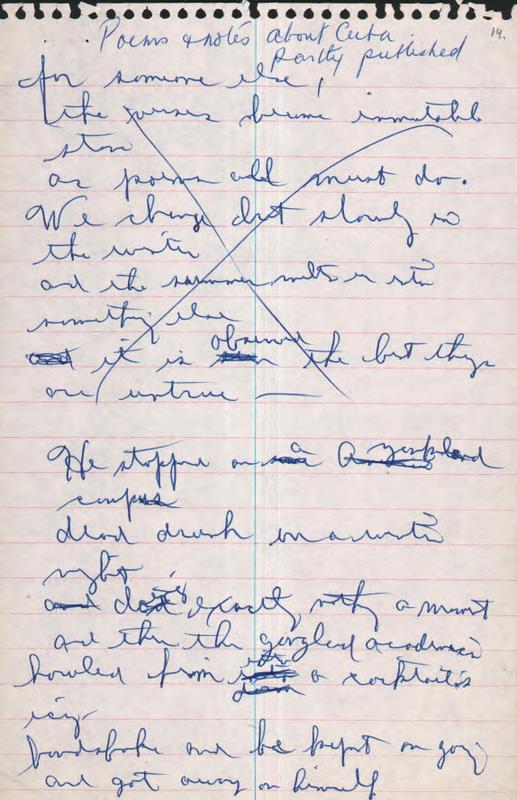 Poems & notes about Cuba
14.
Partly published
for someone else,
the verses become immutable
stone
as poems all must do.
We change but slowly in
the winter
and the summer melts us into
something else
it is observed the best things
are untrue —
He stopped on a
campus
dead drunk on a winter
night
exactly nothing a moment
and then the googled academics
howled from a cocktail's
icy
and he kept on going
and got away on himself